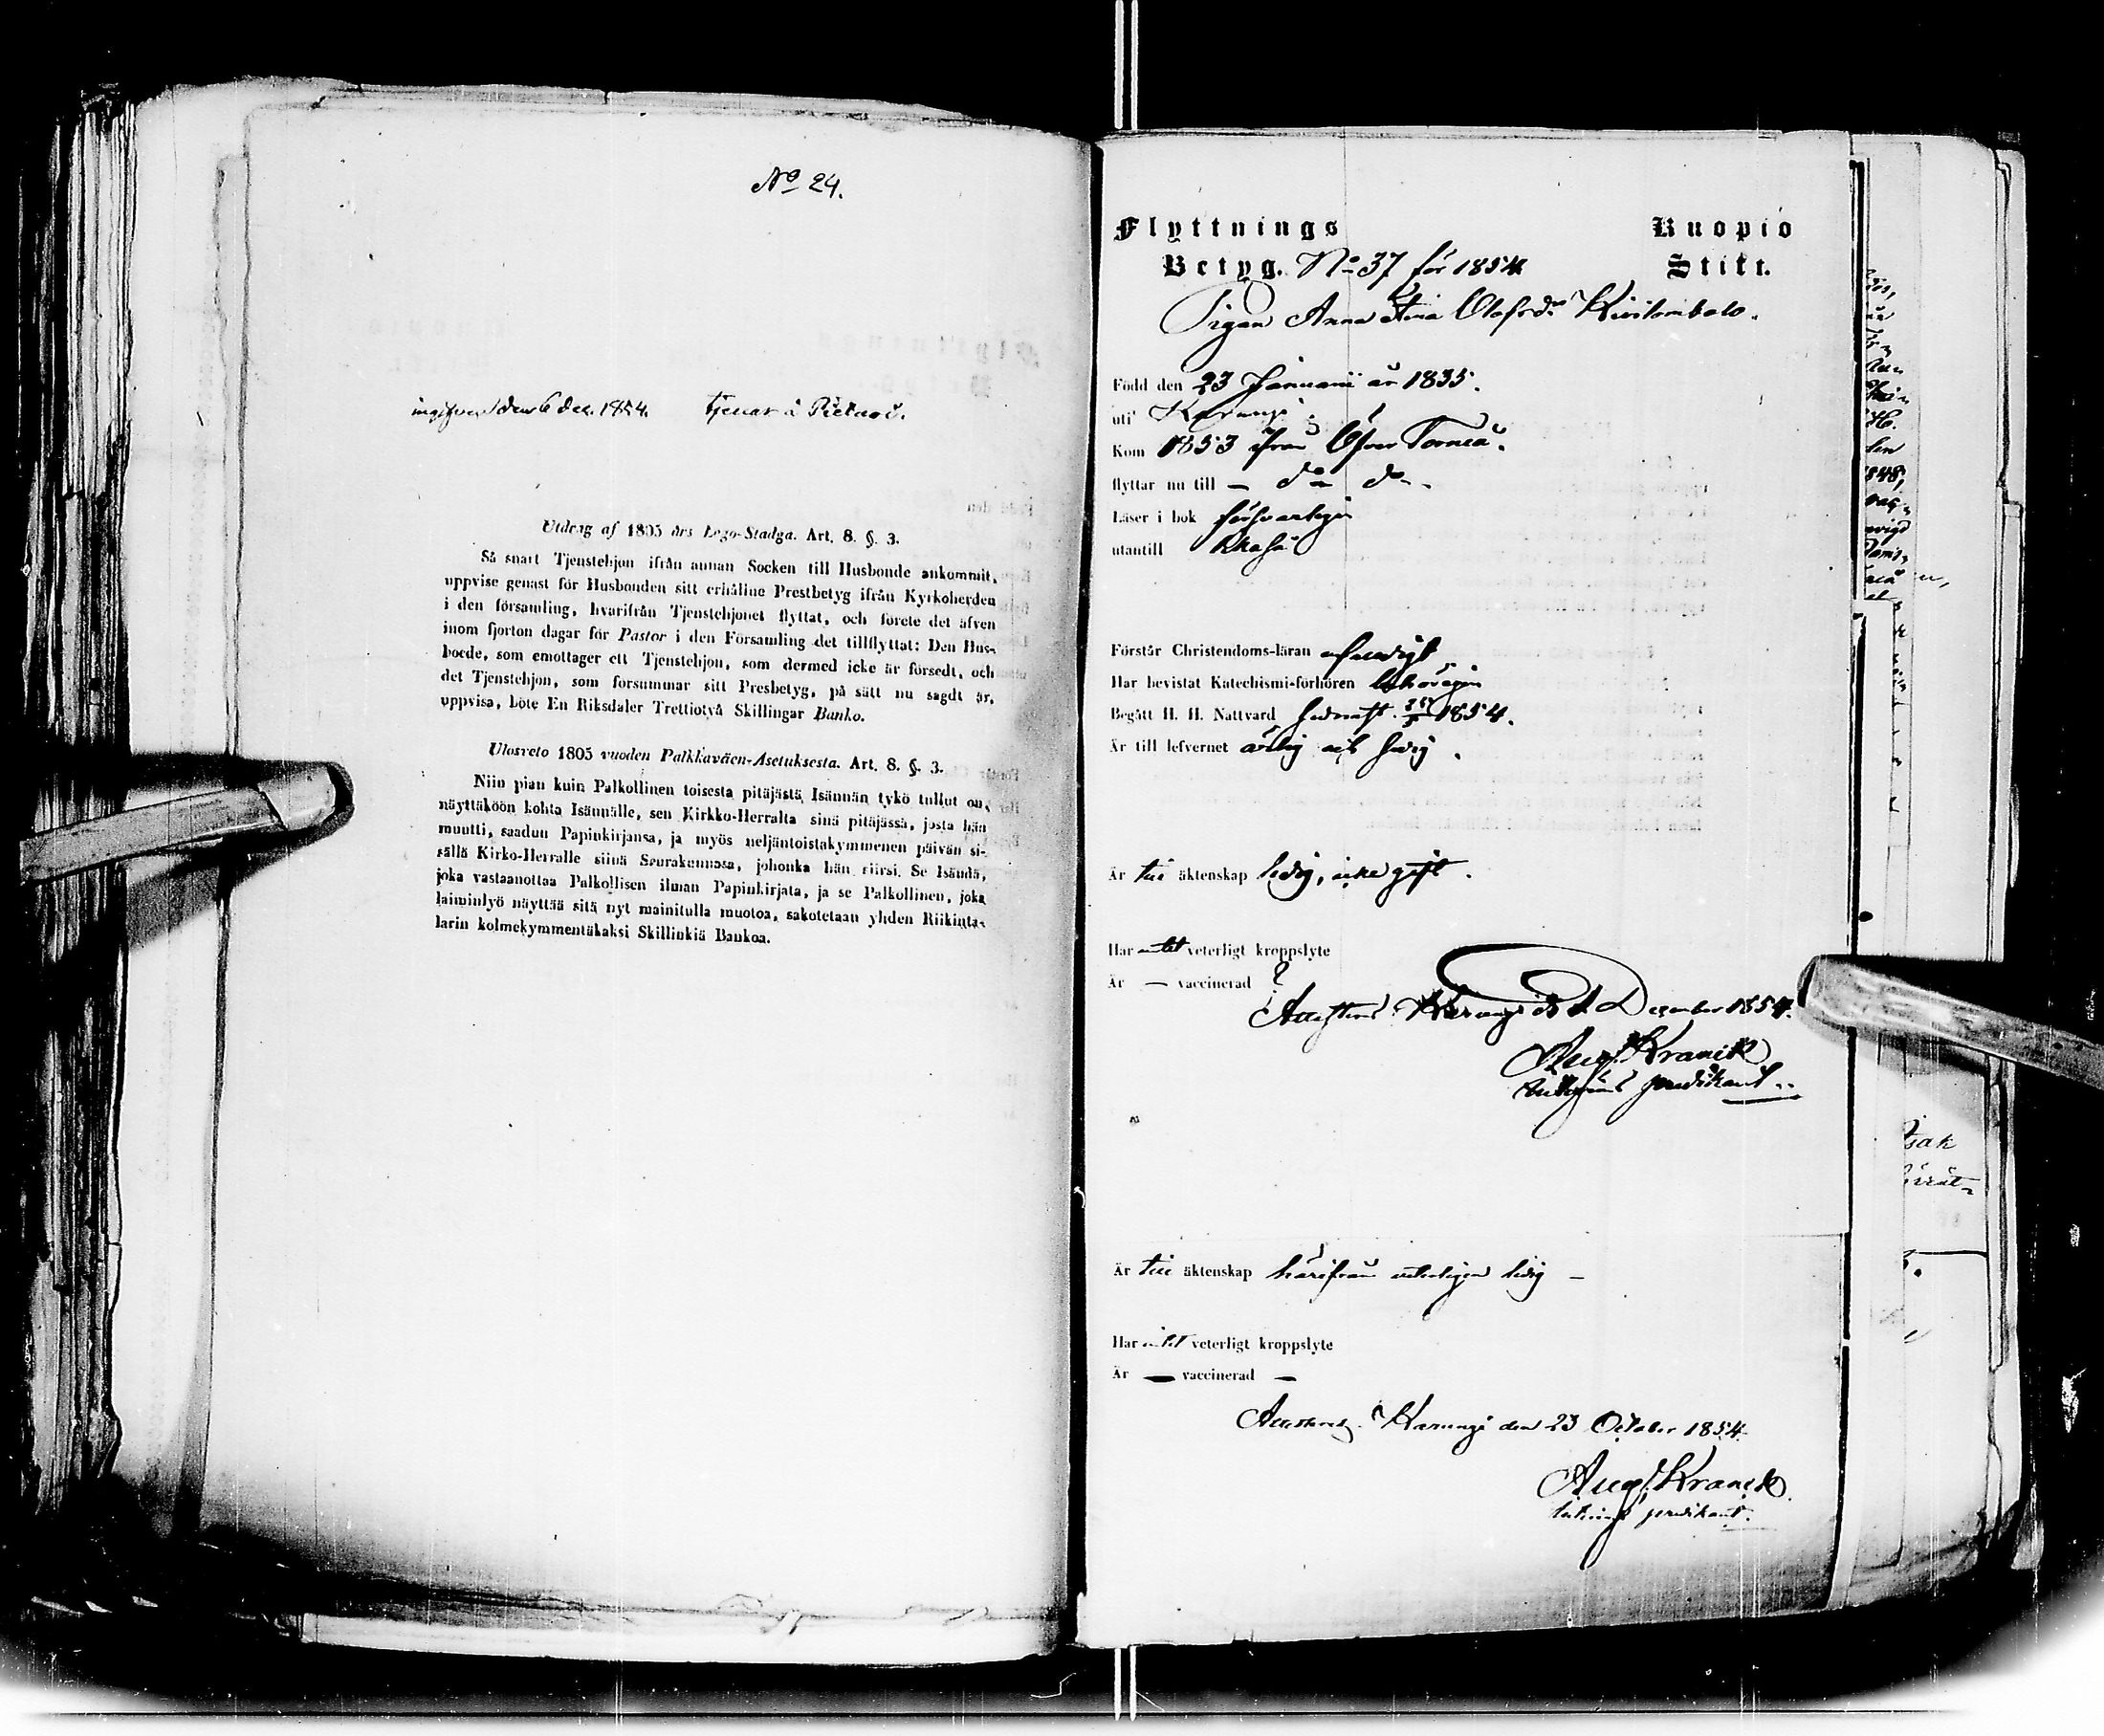 No 24.
ingifven den 6 dec. 1854. tjenar å Pietari.
Utdrag af 1805 års Lego-Stadga. Art. 8. §. 3.
Så snart Tjenstehjon ifrån annan Socken till Husbonde ankommit,
uppvise genast för Husbonden sitt erhållne Prestbetyg ifrån Kyrkoherden
i den församling, hvarifrån Tjenstehjonet flyttat, och förete det äfven
inom fjorton dagar för Pastor i den Församling det tillflyttat: Den Hus-
bonde, som emottager ett Tjenstehjon, som dermed icke är försedt, och
det Tjenstehjon, som försummar sitt Presbetyg, på sätt nu sagdt är,
uppvisa, böte En Riksdaler Trettiotvå Skillingar Banko.
Ulosveto 1805 vuoden Palkkaväen-Asetuksesta. Art. 8. §. 3.
Niin pian kuin Palkollinen toisesta pitäjästä Isännän tykö tullut on,
näyttäköön kohta Isännälle, sen Kirkko-Herralta sinä pitäjässä, josta hän
muutti, saadun Papinkirjansa, ja myös neljäntoistakymmenen päivän si-
sällä Kirko-Herralle siinä Seurakunnassa, johonka hän siirsi. Se Isäntä,
joka vastaanottaa Palkollisen ilman Papinkirjata, ja se Palkollinen, joka
laiminlyö näyttää sitä nyt mainitulla muotoa, sakotetaan yhden Riikinta-
larin kolmekymmentäkaksi Skillinkiä Bankoa.
Flyttnings Kuopio
Betyg. No 37 för 1854 Stift.
Pigan Anna Stina Olofsdr Kivilombolo.
Född den 23 Januarii år 1835.
uti Karungi
Kom 1853 ifrån Öfver Torneå.
flyttar nu till — do do
Läser i bok försvarligen
utantill
Förstår Christendoms-läran
Har bevistat Katechismi-förhören behörigen
Begått H. H. Nattvard 1854.
Är till lefvernet ärlig och
Är till äktenskap ledig, icke gift.
Har intet veterligt kroppslyte
Är — vaccinerad ?
Attesterar Karungi d. 1 December 1854.
Aug. Kranck
predikant.
Är till äktenskap härifrån veterligen ledig —
Har intet veterligt kroppslyte
Är — vaccinerad —
Attesterar Karungi den 23 October 1854.
Aug. Kranck
predikant.